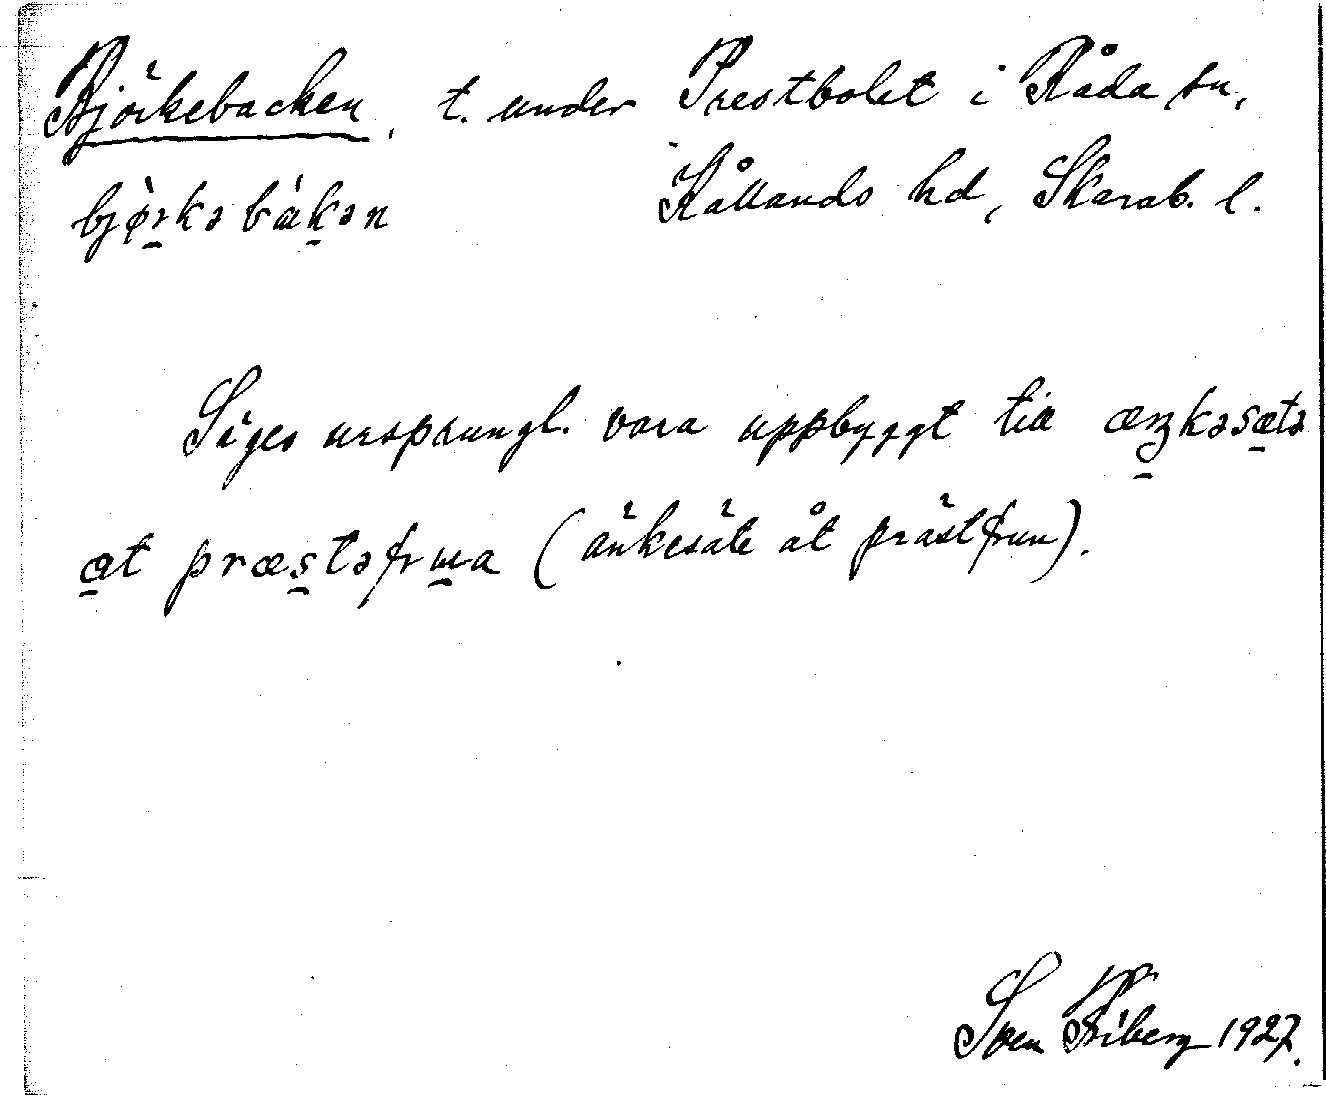 Björkebacken, t. under Prestbolet i Råda sn,
bjø̀rkəbàkən Kållands hd, Skarab. l.
Säges ursprungl. vara uppbyggt till æŋkəsætə
at præstəfrua (änkesäte åt prästfrun).
Sven Friberg 1927.